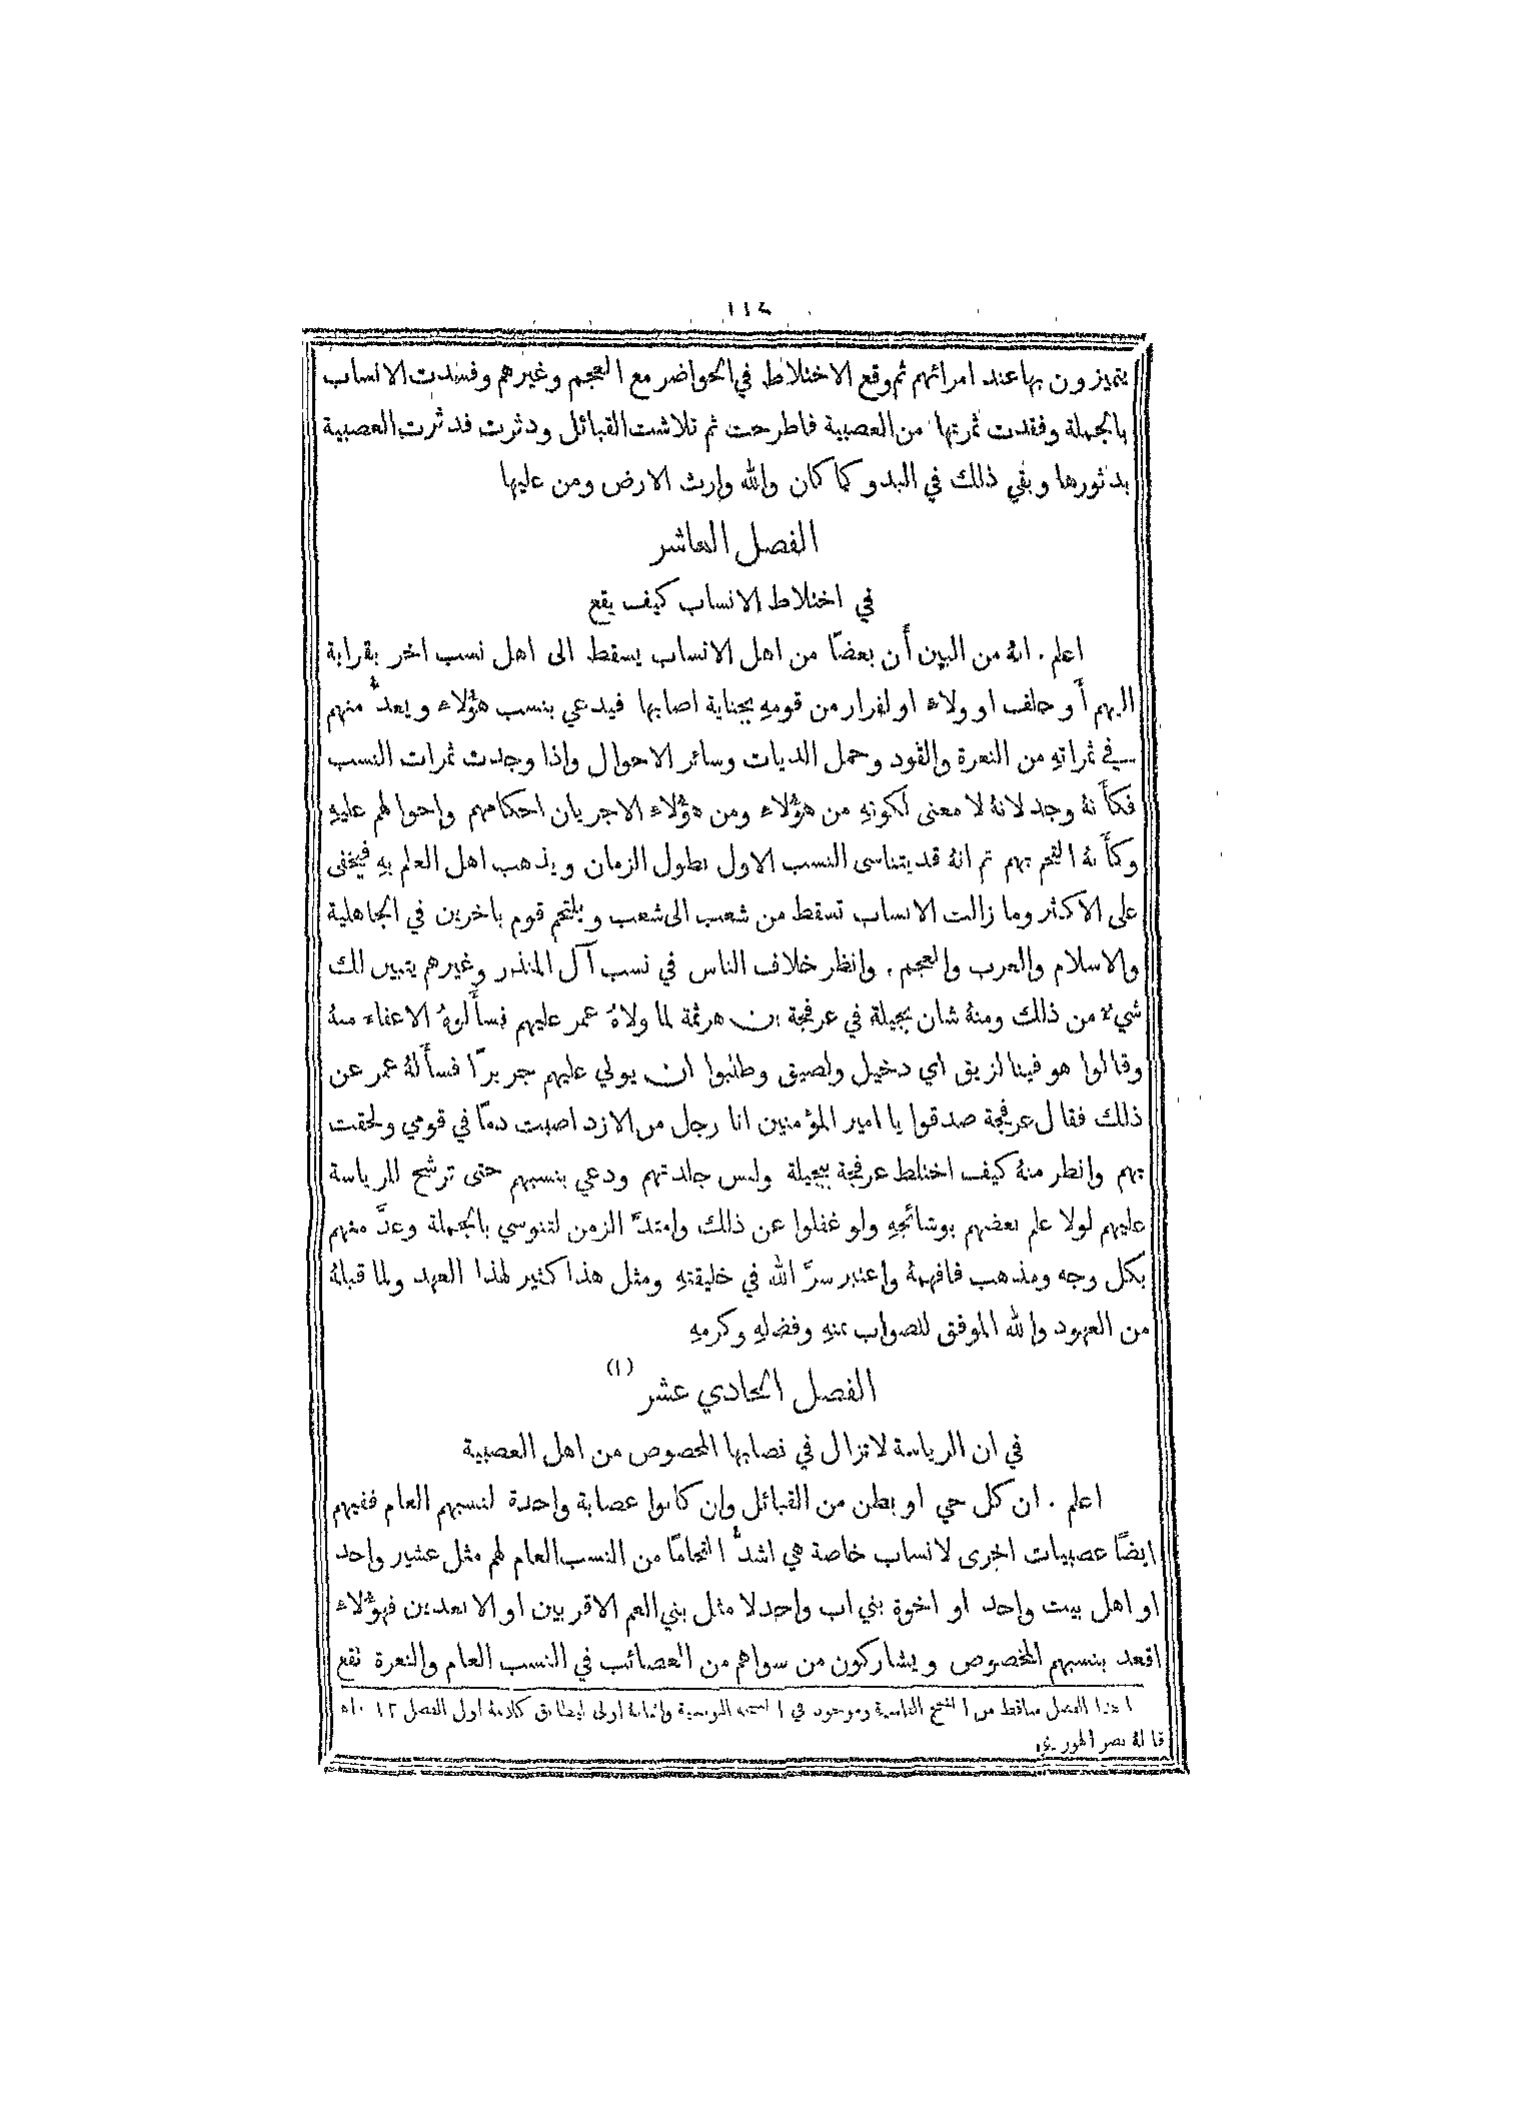 يتميزون بها عند امرائهم ثم وقع الاختلاط في الحواضر مع العجم وغيرهم وفسدت الانساب
بالجملة وفقدت ثمرتها من العصبية فاطرحت ثم تلاشت القبائل ودثرت فدثرت العصبية
بدثورها وبقي ذلك في البدو كما كان والله وارث الارض ومن عليها
الفصل العاشر
في اختلاط الانساب كيف يقع
اعلم . انهُ من البين أن بعضًا من اهل الانساب يسقط الى اهل نسب اخر بقرابة
اليهم أو حلف او ولاء او لفرار من قومهِ بجناية اصابها فيدعي بنسب هؤلاء ويعدُّ منهم
في ثمراتهِ من النعرة والقود وحمل الديات وسائر الاحوال واذا وجدت ثمرات النسب
فكأنهُ وجد لانهُ لا معنى لكونهِ من هؤلاء ومن هؤلاء الا جريان احكامهم واحوالهم عليهِ
وكأنهُ التحم بهم ثم انهُ قد يتناسى النسب الاول بطول الزمان ويذهب اهل العلم بهِ فيخفى
على الاكثر وما زالت الانساب تسقط من شعب الى شعب ويلتحم قوم باخرين في الجاهلية
والاسلام والعرب والعجم . وانظر خلاف الناس في نسب آل المنذر وغيرهم يتبين لك
شيء من ذلك ومنهُ شان بجيلة في عرفجة بن هرثمة لما ولاهُ عمر عليهم فسأَلوهُ الاعفاء منهُ
وقالوا هو فينا لزيق اي دخيل ولصيق وطلبوا ان يولي عليهم جريرًا فسأَلهُ عمر عن
ذلك فقال عرفجة صدقوا يا امير المؤمنين انا رجل من الازد اصبت دمًا في قومي ولحقت
بهم وانظر منهُ كيف اختلط عرفجة ببجيلة ولبس جلدتهم ودعي بنسبهم حتى ترشح للرياسة
عليهم لولا علم بعضهم بوشائجهِ ولو غفلوا عن ذلك وامتدَّ الزمن لتنوسي بالجملة وعدَّ منهم
بكل وجه ومذهب فافهمهُ واعتبر سرَّ الله في خليقتهِ ومثل هذا كثير لهذا العهد ولما قبلهُ
من العهود والله الموفق للصواب بمنهِ وفضلهِ وكرمهِ
الفصل الحادي عشر (١)
في ان الرياسة لا تزال في نصابها المخصوص من اهل العصبية
اعلم . ان كل حي او بطن من القبائل وان كانوا عصابة واحدة لنسبهم العام ففيهم
ايضًا عصبيات اخرى لانساب خاصة هي اشدُّ التحامًا من النسب العام لهم مثل عشير واحد
او اهل بيت واحد او اخوة بني اب واحد لا مثل بني العم الاقربين او الابعدين فهؤلاء
اقعد بنسبهم المخصوص ويشاركون من سواهم من العصائب في النسب العام والنعرة تقع
١ هذا الفصل ساقط من النسخ الفاسية وموجود في النسخة التونسية واثباتهُ اولى ليطابق كلامهُ اول الفصل ١٢ . اه
قالهُ نصر الهوريني